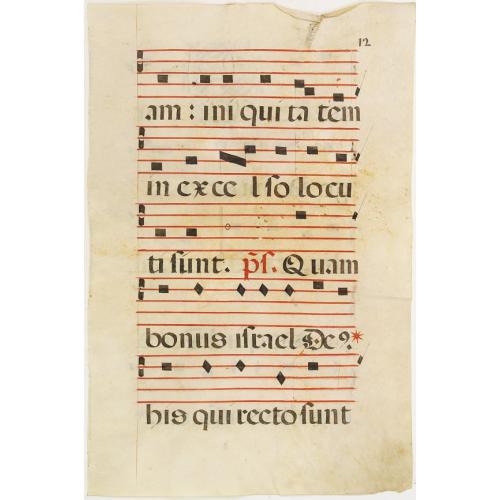 12
am : ini qui ta tem
in exce lso locu
ti sunt. ps. Quam
bonus israel De9.*
his qui recto sunt